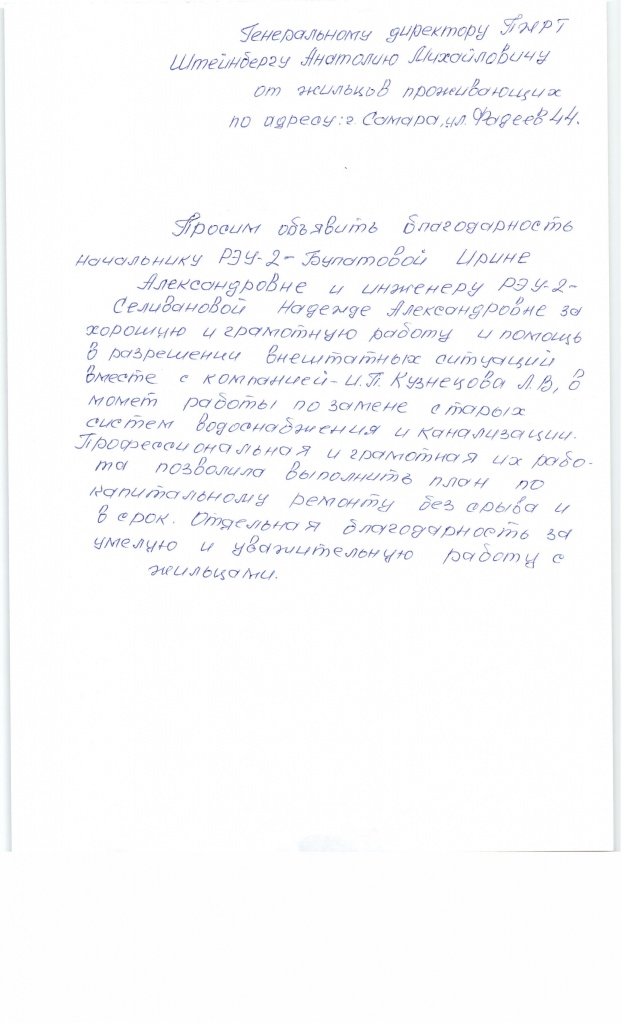 Генеральному директору ПЖРТ
Штейнбергу Анатолию Михайловичу
от жильцов проживающих
по адресу: г. Самара, ул. Фадеев 44.
Просим объявить благодарность
начальнику РЭУ-2- Булатовой Ирине
Александровне и инженеру РЭУ-2-
Селивановой Надежде Александровне за
хорошую и грамотную работу и помощь
в разрешении внештатных ситуаций
вместе с компанией- И.П. Кузнецова Л.В, в
момет работы по замене старых
систем водоснабжения и канализации.
Профессиональная и грамотная их рабо-
та позволила выполнить план по
капитальному ремонту без срыва и
в срок. Отдельная благодарность за
умелую и уважительную работу с
жильцами.